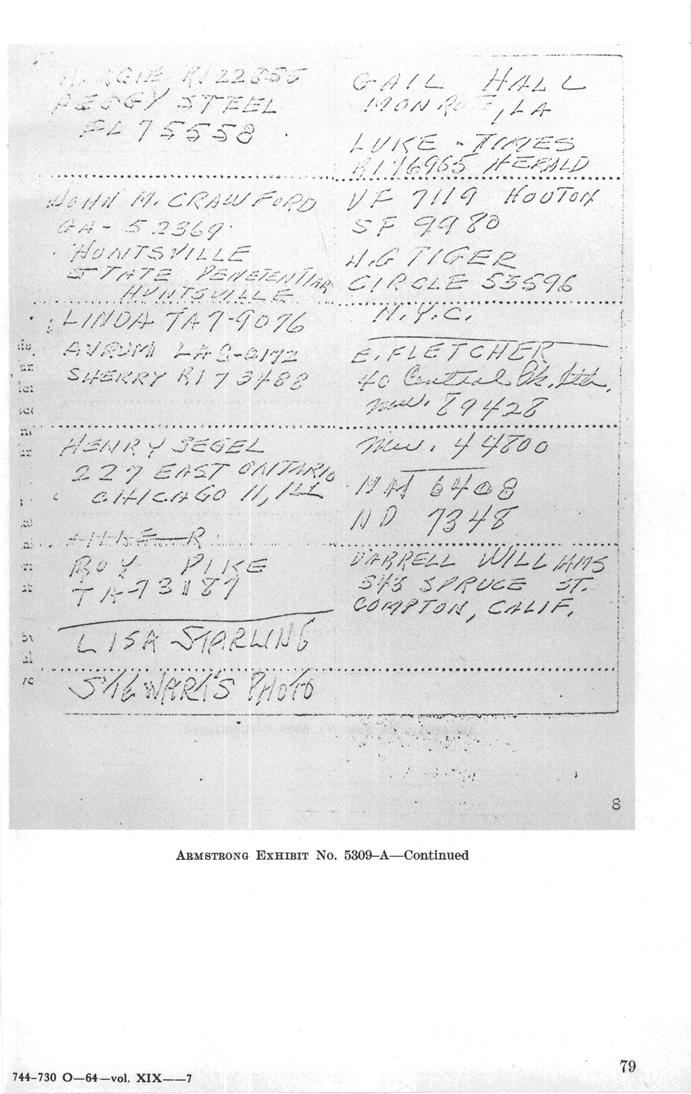 RI 22856
PEGGY STEEL
FL 75558
JOHN M. CRAWFORD
GA- 52369
HUNTSVILLE
STATE PENETENTIAR
HUNTSVILLE
LINDA TA7-9076
AVRUM LA8-0172
SHERRY RI 7 3488
HENRY SEGEL
227 EAST ONTARIO
CHICAGO 11, ILL
MIKE R
ROY PIKE
TA-73187
LISA STARLING
STEWART'S PHOTO
GAIL HALL
MONROE, LA
LUKE - TIMES
RI 76965 HERALD
VF 7119 HOUTON
SF 9980
H.G TIGER
CIRCLE 53596
N.Y.C.
E. FLETCHER
40 Central Pk. Sth.
89428
44800
6408
ND 7348
DARRELL WILLIAMS
SPRUCE ST.
COMPTON, CALIF.
8
ARMSTRONG EXHIBIT No. 5309-A—Continued
79
744-730 O—64—vol. XIX——7